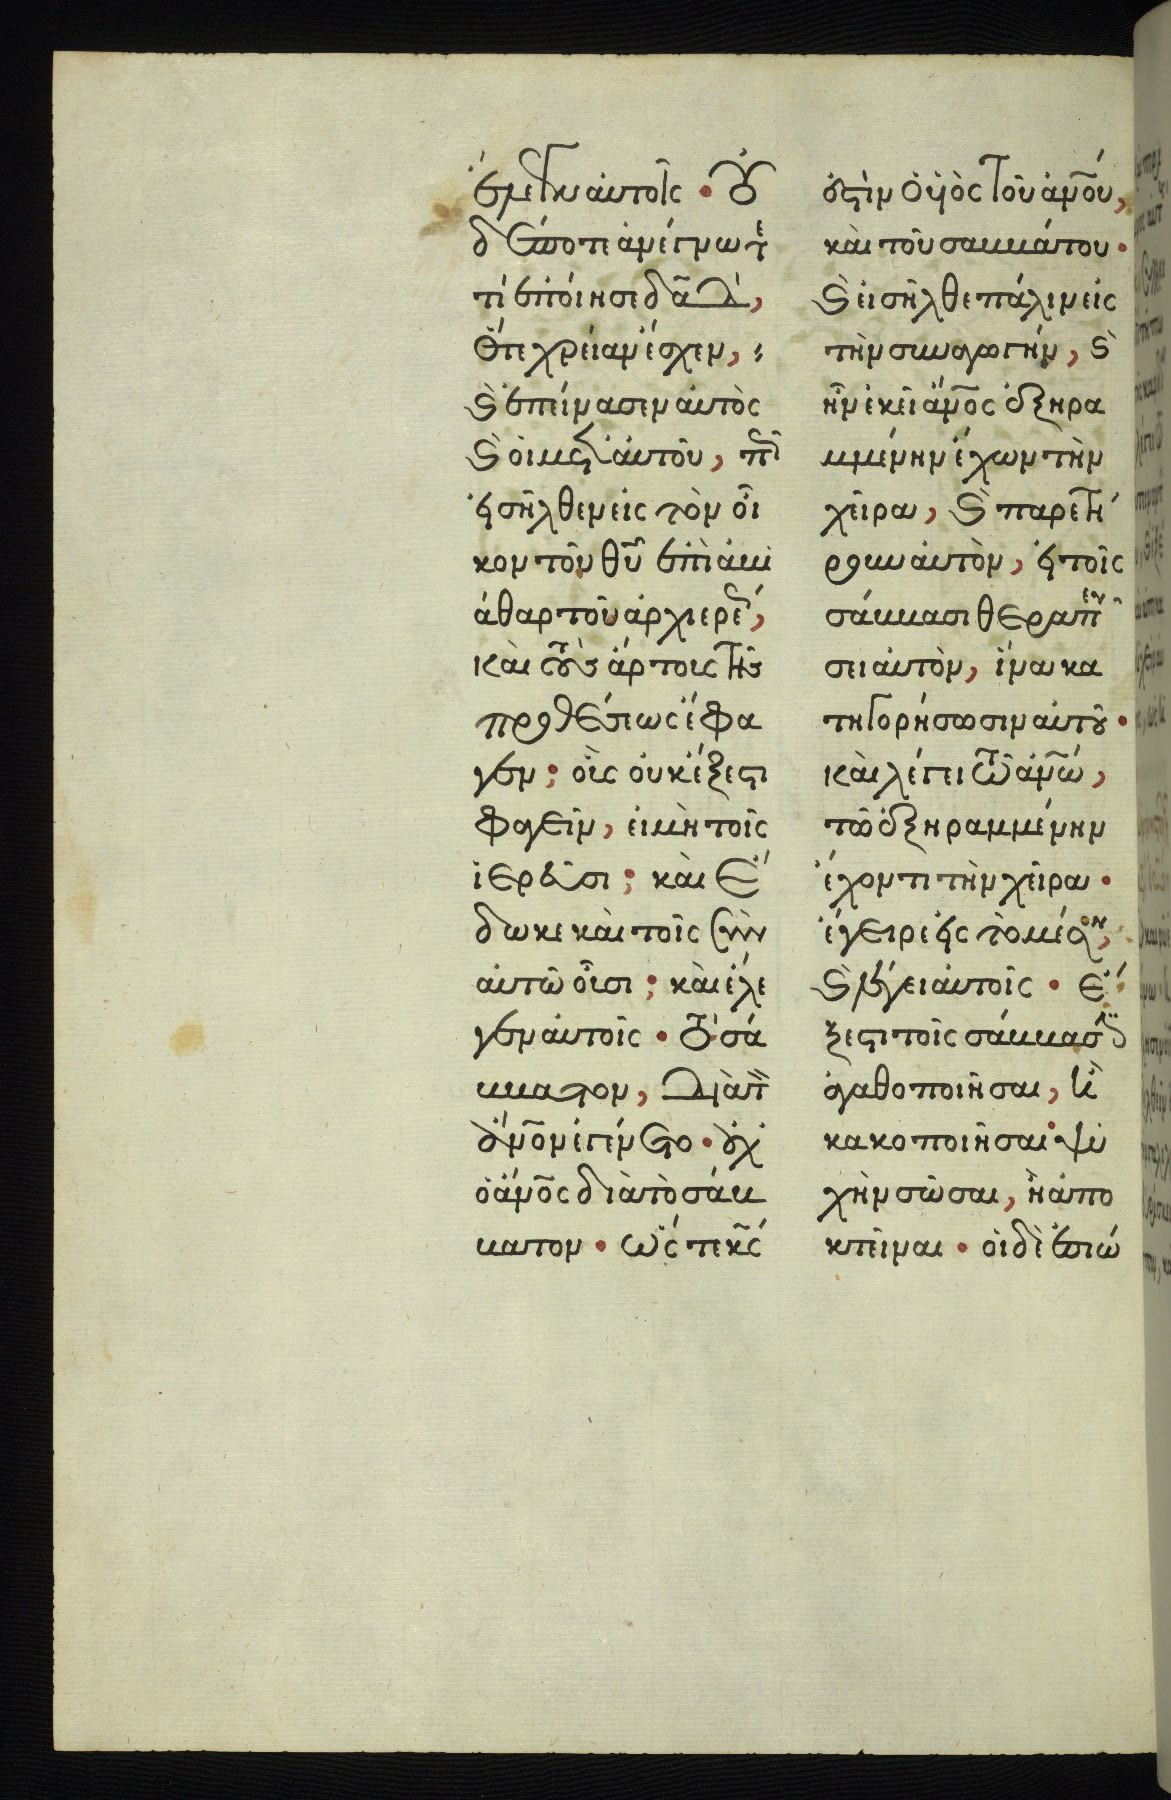 ἔλεγεν αὐτοῖς · Οὐ
δέποτε ἀνέγνωτε
τί ἐποίησε δᾱδ,
ὅτε χρείαν ἔσχεν,
καὶ ἐπείνασεν αὐτὸς
καὶ οἱ μετ αὐτοῦ, πῶς
εἰσῆλθεν εἰς τὸν οἶ
κον τοῦ θῡ ἐπὶ ἀβι
άθαρ τοῦ ἀρχιερέως,
καὶ τοὺς ἄρτους τῆς
προθέσεως ἔφα
γεν; οὓς οὐκ ἔξεστι
φαγεῖν, εἰ μὴ τοῖς
ἱερεῦσι; καὶ ἔ
δωκε καὶ τοῖς σὺν
αὐτῶ οὖσι; καὶ ἔλε
γεν αὐτοῖς · Τὸ σά
ββατον, διὰ τὸν
ἄν̄ον ἐγένετο · οὐχ
ὁ ἄν̄ος διὰ τὸ σάβ
βατον · ὥστε κ̄ς
ἐστὶν ὁ υἱὸς τοῦ ἀν̄ου,
καὶ τοῦ σαββάτου ·
καὶ εἰσῆλθε πάλιν εἰς
τὴν συναγωγήν, καὶ
ἦν ἐκεῖ ἄν̄ος ἐξηρα
μμένην ἔχων τὴν
χεῖρα, καὶ παρετή
ρουν αὐτὸν, εἰ τοῖς
σάββασι θεραπεύ
σει αὐτὸν, ἵνα κα
τηγορήσωσιν αὐτοῦ ·
καὶ λέγει τῶ ἀν̄ω,
τῶ ἐξηραμμένην
ἔχοντι τὴν χεῖρα ·
ἔγειρε εἰς τὸ μέσον,
καὶ λέγει αὐτοῖς · ἔ
ξεστι τοῖς σάββασιν
ἀγαθοποιῆσαι, ἢ
κακοποιῆσαι · ψυ
χὴν σῶσαι, ἢ ἀπο
κτεῖναι · οἱ δὲ ἐσιώ